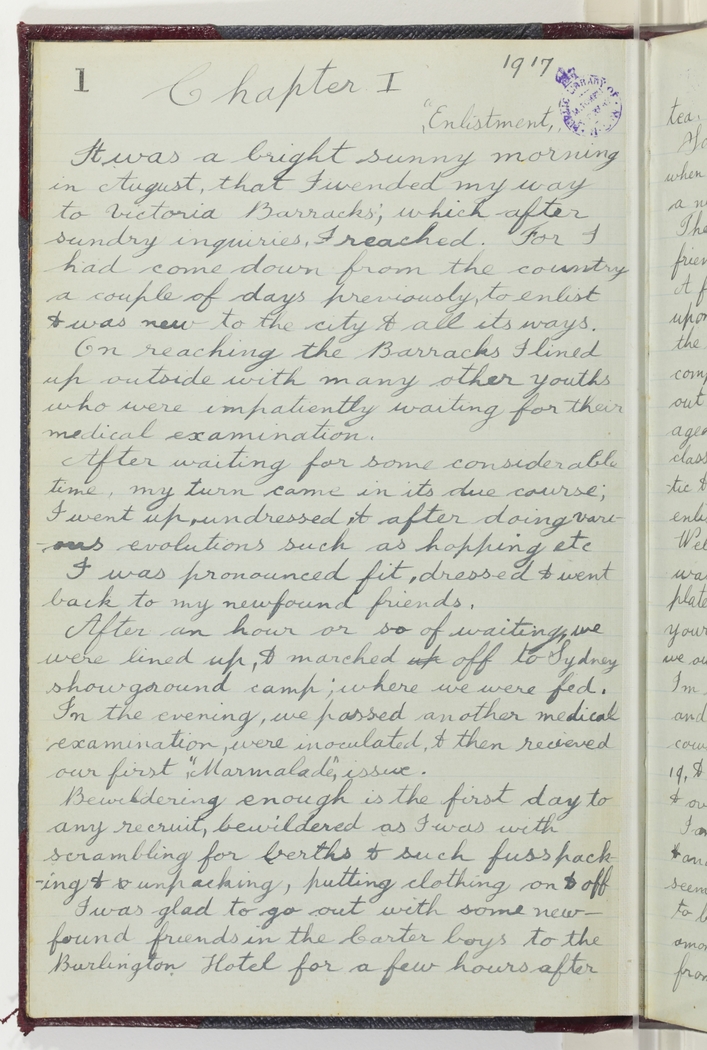 1
1917
Chapter I
"Enlistment,,
It was a bright sunny morning
in August, that I wended my way
to Victoria Barracks; which after
sundry inquiries, I reached. For I
had come down from the country
a couple of days previously, to enlist
& was new to the city & all its ways.
On reaching the Barracks I lined
up outside with many other youths
who were impatiently waiting for their
medical examination.
After waiting for some considerable
time, my turn came in its due course;
I went up, undressed, & after doing vari-
-ous evolutions such as hopping etc
I was pronounced fit, dressed & went
back to my newfound friends.
After an hour or so of waiting, we
were lined up, & marched up off to Sydney
showground camp; where we were fed.
In the evening, we passed another medical
examination, were inoculated, & then recieved
our first "Marmalade," issue.
Bewildering enough is the first day to
any recruit, bewildered as I was with
scrambling for berths & such fuss pack-
-ing & unpacking, putting clothing on & off
I was glad to go out with some new-
found friends in the Carter boys to the
Burlington Hotel for a few hours after
tea.
when
a
The
upon
the
out
your
we
I'm
and
19, &
to
from